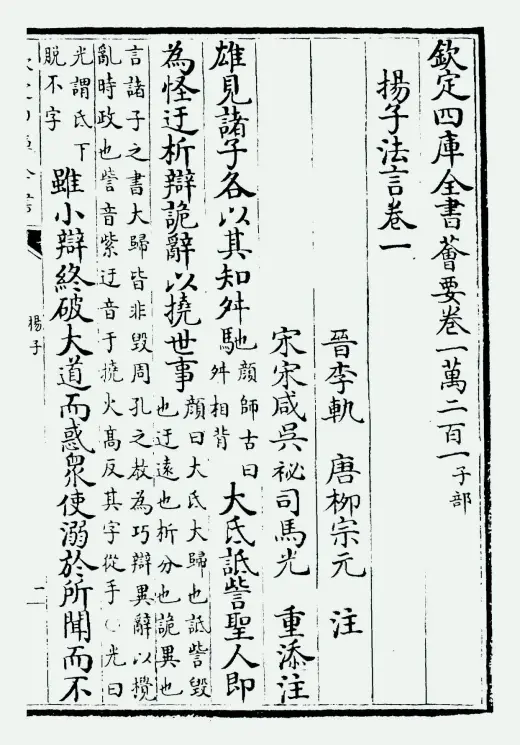 欽定四庫全書薈要卷一萬二百一子部
揚子法言卷一
晉李軌 唐柳宗元 注
宋宋咸吳祕司馬光 重添注
雄見諸子各以其知舛馳顔師古曰舛相背也大氐詆訾聖人即
為怪迂析辯詭辭以撓世事顔曰大氐大歸也詆訾毀也迂遠也析分也詭異也
言諸子之書大歸皆非毀周孔之教為巧辯異辭以攪
亂時政也訾音紫迂音于撓火髙反其字從手 光曰
光謂氐下脱不字雖小辯終破大道而惑衆使溺於所聞而不
揚子
二